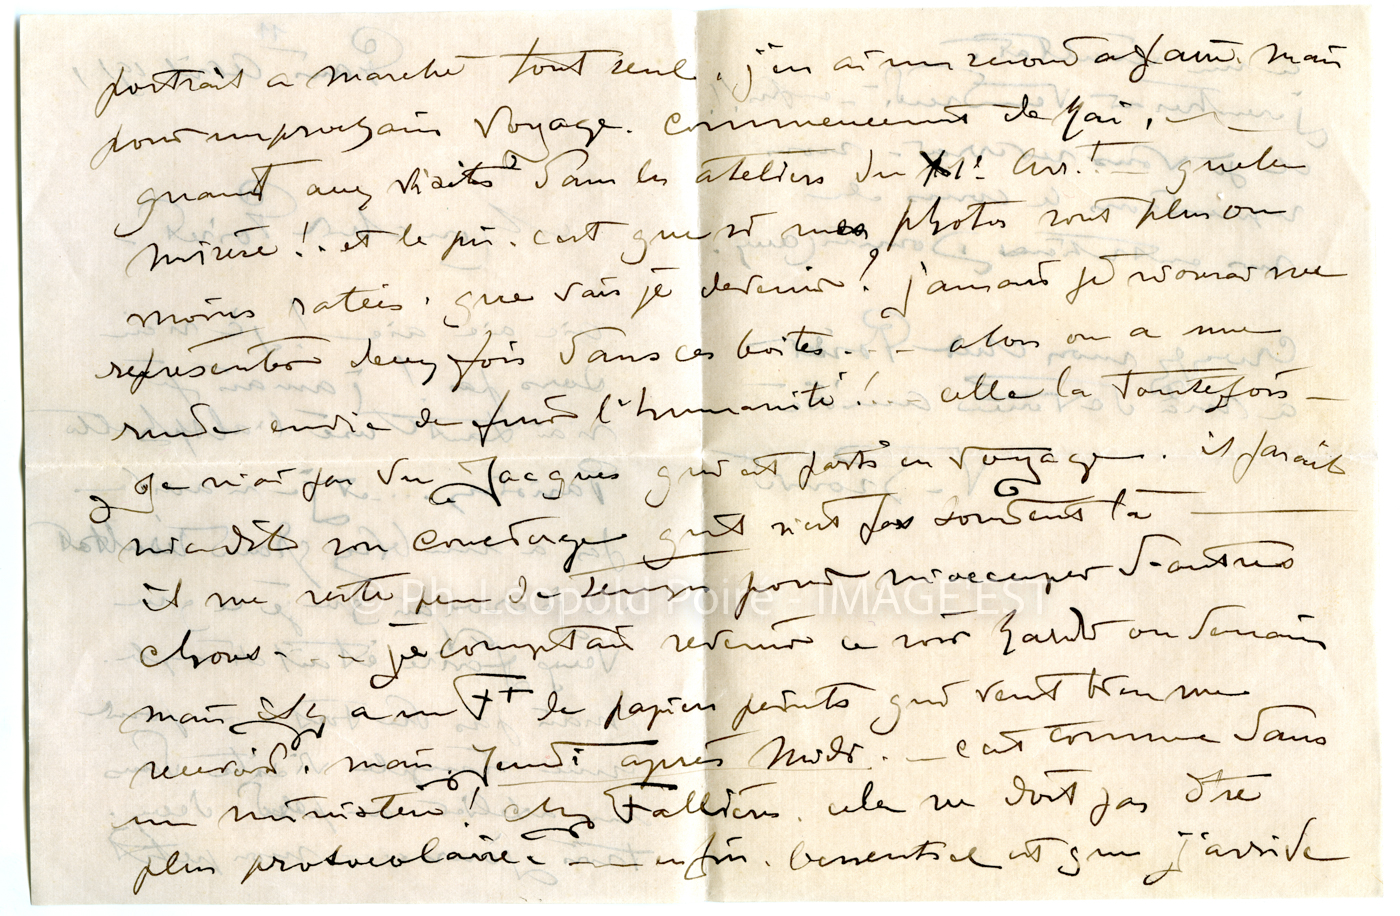 portrait a marché tout seul. j'en ai un second a faire. mais
pour un prochain voyage. commencement de Mai, —
quant aux visites dans les ateliers du XIe Arr.t — quelle
misère! . et le pis. c'est que si mes photos sont plus ou
moins ratées, que vais je devenir? jamais je n'oserai me
représenter deux fois dans ces boites. — alors on a une
rude envie de l'humanité! celle là toutefois —
Je n'ai pas vu Jacques qui est parti en voyage. il parait
m'a dit son concierge qu'il n'est pas souvent là
il me reste peu de temps pour m'occuper d'autres
choses — je comptais revenir ce soir Mardi ou demain
mais il y a un Ft de papiers peints qui veut bien me
recevoir, mais Jeudi après midi. — c'est comme dans
un ministère! chez Fallières. cela ne doit pas être
plus protocolaire — enfin. l'essentiel est que j'arrive
© Ph. Léopold Poiré - IMAGE'EST